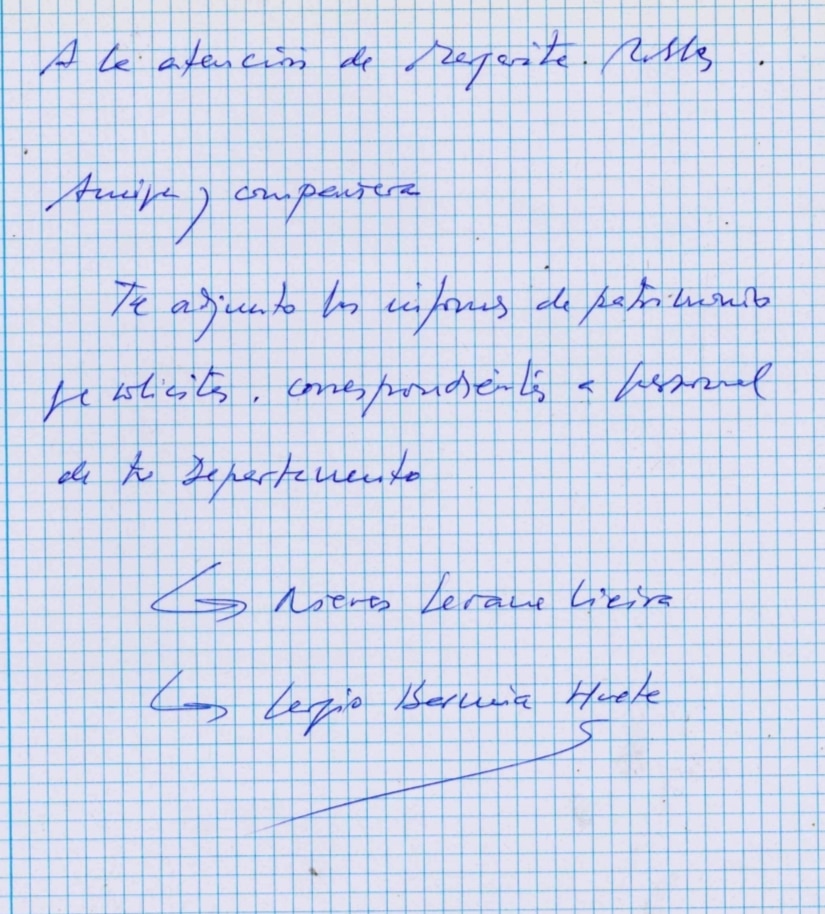 A la atención de Margarita Robles.
Amiga y compañera
Te adjunto los informes de patrimonio
que solicitas, correspondientes a personal
de tu Departamento
Nieves Seoane Vieira
Sergio Bermia Huete